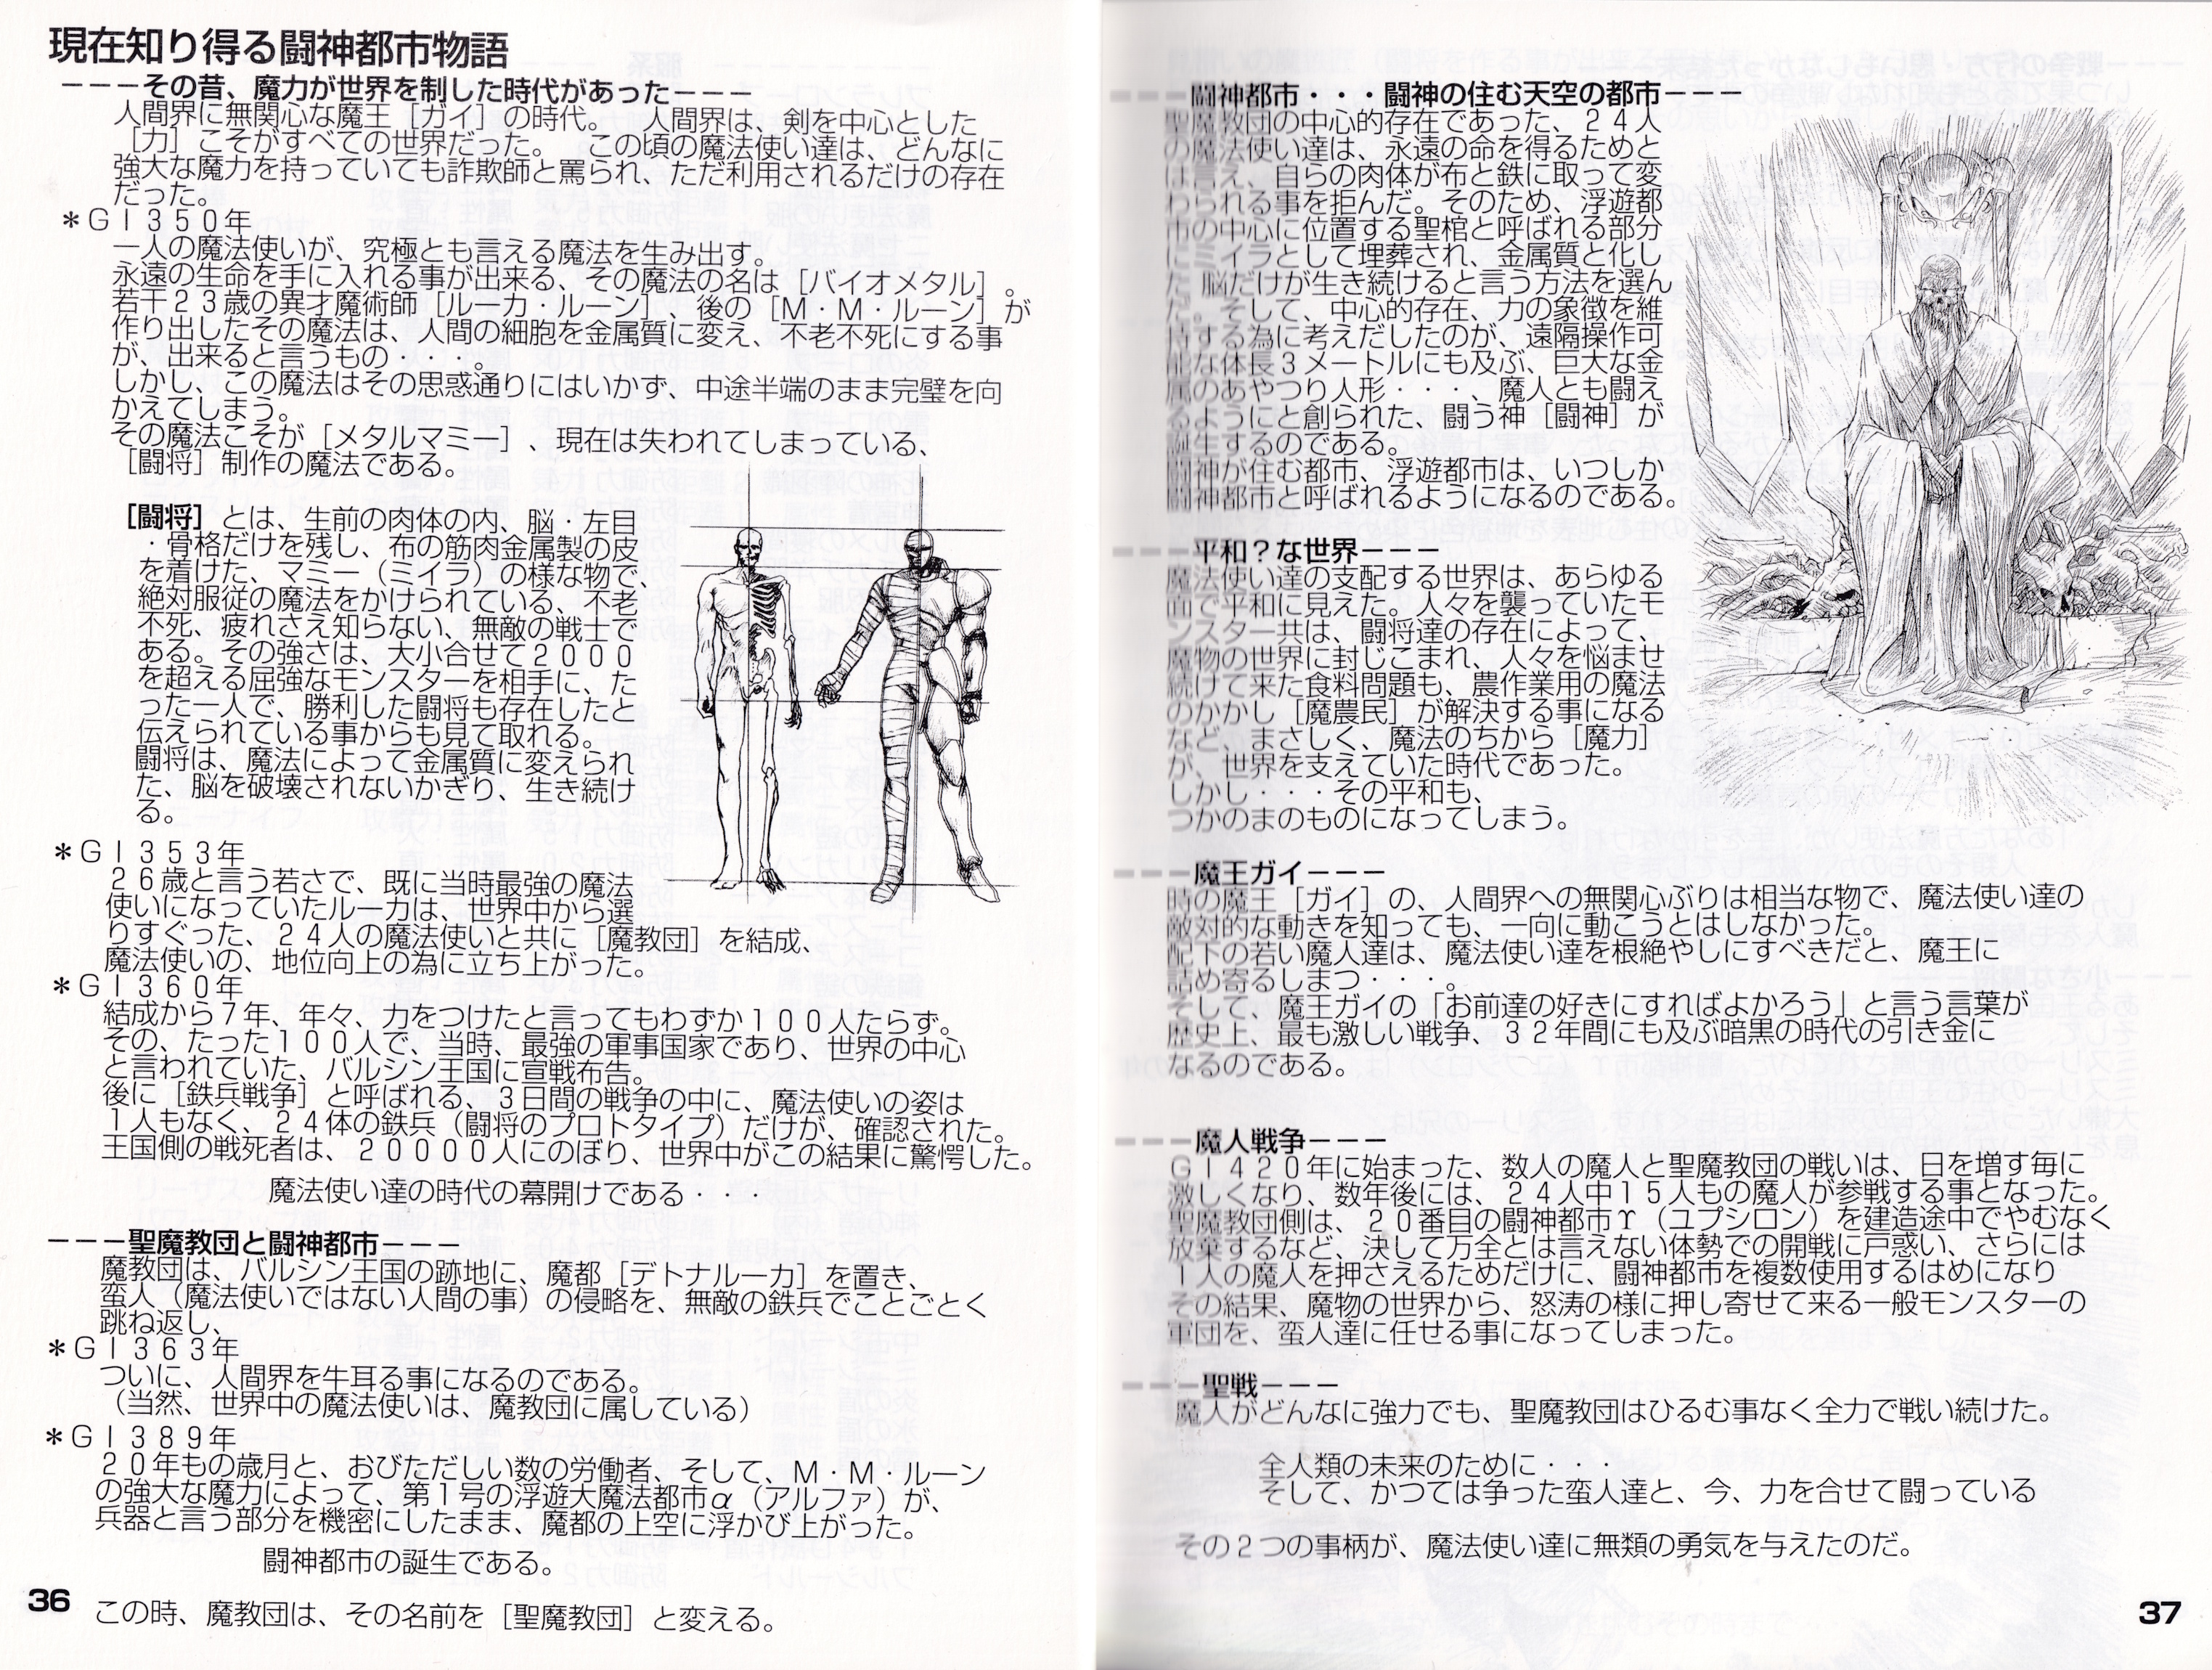 現在知り得る闘神都市物語
---その昔、魔力が世界を制した時代があった---
人間界に無関心な魔王［ガイ］の時代。　人間界は、剣を中心とした
［力］こそがすべての世界だった。　この頃の魔法使い達は、どんなに
強大な魔力を持っていても詐欺師と罵られ、ただ利用されるだけの存在
だった。
＊GI350年
一人の魔法使いが、究極とも言える魔法を生み出す。
永遠の生命を手に入れる事が出来る、その魔法の名は［バイオメタル］。
若干23歳の異才魔術師［ルーカ・ルーン］、後の［M・M・ルーン］が
作り出したその魔法は、人間の細胞を金属質に変え、不老不死にする事
が、出来ると言うもの・・・。
しかし、この魔法はその思惑通りにはいかず、中途半端のまま完璧を向
かえてしまう。
その魔法こそが［メタルマミー］、現在は失われてしまっている、
［闘将］制作の魔法である。
［闘将］とは、生前の肉体の内、脳・左目
・骨格だけを残し、布の筋肉金属製の皮
を着けた、マミー（ミイラ）の様な物で、
絶対服従の魔法をかけられている、不老
不死、疲れさえ知らない、無敵の戦士で
ある。その強さは、大小合せて2000
を超える屈強なモンスターを相手に、た
った一人で、勝利した闘将も存在したと
伝えられている事からも見て取れる。
闘将は、魔法によって金属質に変えられ
た、脳を破壊されないかぎり、生き続け
る。
＊GI353年
26歳と言う若さで、既に当時最強の魔法
使いになっていたルーカは、世界中から選
りすぐった、24人の魔法使いと共に［魔教団］を結成、
魔法使いの、地位向上の為に立ち上がった。
＊GI360年
結成から7年、年々、力をつけたと言ってもわずか100人たらず。
その、たった100人で、当時、最強の軍事国家であり、世界の中心
と言われていた、バルシン王国に宣戦布告。
後に［鉄兵戦争］と呼ばれる、3日間の戦争の中に、魔法使いの姿は
1人もなく、24体の鉄兵（闘将のプロトタイプ）だけが、確認された。
王国側の戦死者は、20000人にのぼり、世界中がこの結果に驚愕した。
魔法使い達の時代の幕開けである・・・
---聖魔教団と闘神都市---
魔教団は、バルシン王国の跡地に、魔都［デトナルーカ］を置き、
蛮人（魔法使いではない人間の事）の侵略を、無敵の鉄兵でことごとく
跳ね返し、
＊GI363年
ついに、人間界を牛耳る事になるのである。
（当然、世界中の魔法使いは、魔教団に属している）
＊GI389年
20年もの歳月と、おびただしい数の労働者、そして、M・M・ルーン
の強大な魔力によって、第1号の浮遊大魔法都市α（アルファ）が、
兵器と言う部分を機密にしたまま、魔都の上空に浮かび上がった。
闘神都市の誕生である。
この時、魔教団は、その名前を［聖魔教団］と変える。
36
---闘神都市・・・闘神の住む天空の都市---
聖魔教団の中心的存在であった、24人
の魔法使い達は、永遠の命を得るためと
は言え、自らの肉体が布と鉄に取って変
わられる事を拒んだ。そのため、浮遊都
市の中心に位置する聖棺と呼ばれる部分
にミイラとして埋葬され、金属質と化し
た、脳だけが生き続けると言う方法を選ん
だ。そして、中心的存在、力の象徴を維
持する為に考えだしたのが、遠隔操作可
能な体長3メートルにも及ぶ、巨大な金
属のあやつり人形・・・、魔人とも闘え
るようにと創られた、闘う神［闘神］が
誕生するのである。
闘神が住む都市、浮遊都市は、いつしか
闘神都市と呼ばれるようになるのである。
---平和？な世界---
魔法使い達の支配する世界は、あらゆる
面で平和に見えた。人々を襲っていたモ
ンスター共は、闘将達の存在によって、
魔物の世界に封じこまれ、人々を悩ませ
続けて来た食料問題も、農作業用の魔法
のかかし［魔農民］が解決する事になる
など、まさしく、魔法のちから［魔力］
が、世界を支えていた時代であった。
しかし・・・その平和も、
つかのまのものになってしまう。
---魔王ガイ---
時の魔王［ガイ］の、人間界への無関心ぶりは相当な物で、魔法使い達の
敵対的な動きを知っても、一向に動こうとはしなかった。
配下の若い魔人達は、魔法使い達を根絶やしにすべきだと、魔王に
詰め寄るしまつ・・・。
そして、魔王ガイの「お前達の好きにすればよかろう」と言う言葉が
歴史上、最も激しい戦争、32年間にも及ぶ暗黒の時代の引き金に
なるのである。
---魔人戦争---
GI420年に始まった、数人の魔人と聖魔教団の戦いは、日を増す毎に
激しくなり、数年後には、24人中15人もの魔人が参戦する事となった。
聖魔教団側は、20番目の闘神都市Υ（ユプシロン）を建造途中でやむなく
放棄するなど、決して万全とは言えない体勢での開戦に戸惑い、さらには
1人の魔人を押さえるためだけに、闘神都市を複数使用するはめになり
その結果、魔物の世界から、怒涛の様に押し寄せて来る一般モンスターの
軍団を、蛮人達に任せる事になってしまった。
---聖戦---
魔人がどんなに強力でも、聖魔教団はひるむ事なく全力で戦い続けた。
全人類の未来のために・・・
そして、かつては争った蛮人達と、今、力を合せて闘っている
その2つの事柄が、魔法使い達に無類の勇気を与えたのだ。
37